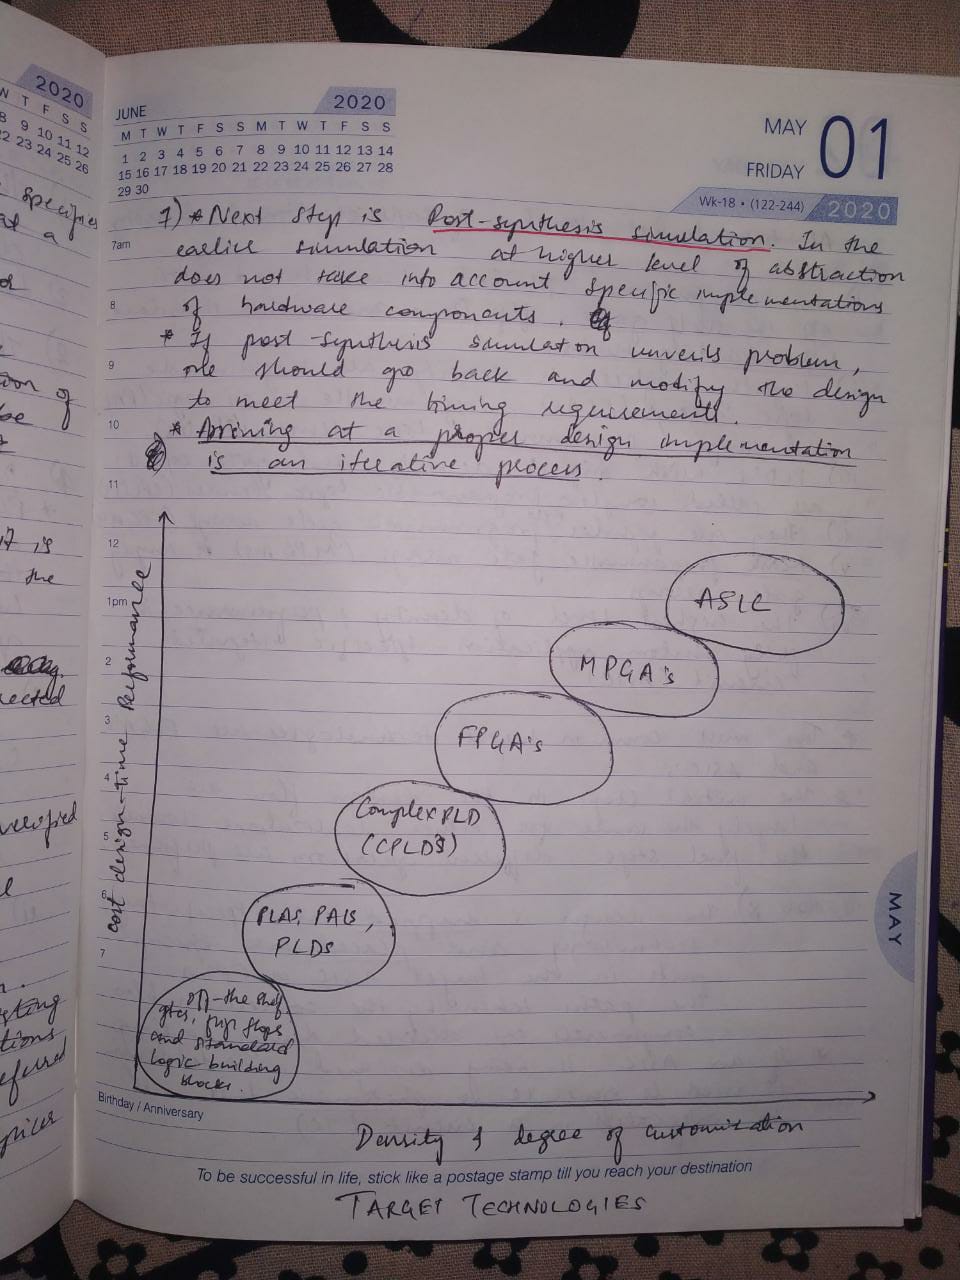 2020
W T F S S
8 9 10 11 12
22 23 24 25 26
specifies
a
of
be
it is
the
verified
JUNE 2020
M T W T F S S M T W T F S S
1 2 3 4 5 6 7 8 9 10 11 12 13 14
15 16 17 18 19 20 21 22 23 24 25 26 27 28
29 30
MAY 01
FRIDAY
Wk-18 • (122-244) 2020
7) * Next step is Post-synthesis simulation. In the
7am earlier simulation at higher level of abstraction
does not take into account specific implementations
8 of hardware components.
* If post-synthesis simulation unveils problem,
9 one should go back and modify the design
to meet the timing requirements.
10 * Arriving at a proper design implementation
is an iterative process.
11
12
1pm
2
3
4
5
6
7
cost design-time Performance
ASIC
MPGA's
FPGA's
Complex PLD
(CPLDs)
PLAs, PALs,
PLDs
off-the shelf
gtes, flip flops
and standard
logic building
blocks.
MAY
Birthday / Anniversary
Density & degree of customization
To be successful in life, stick like a postage stamp till you reach your destination
TARGET TECHNOLOGIES